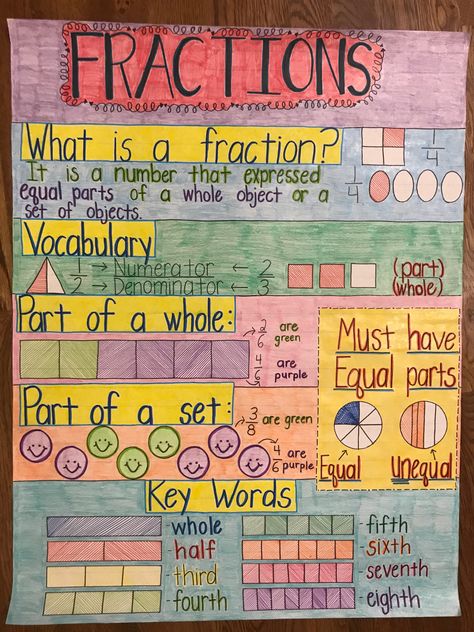 FRACTIONS
What is a fraction?
It is a number that expressed
equal parts of a whole object or a
set of objects.
1/4
1/4
Vocabulary
1 → Numerator ← 2 (part)
2 → Denominator ← 3 (whole)
Part of a whole:
2/6 are green
4/6 are purple
Must have
Equal parts
Equal
Unequal
Part of a set:
3/8 are green
4/6 are purple
Key Words
whole
half
third
fourth
fifth
sixth
seventh
eighth